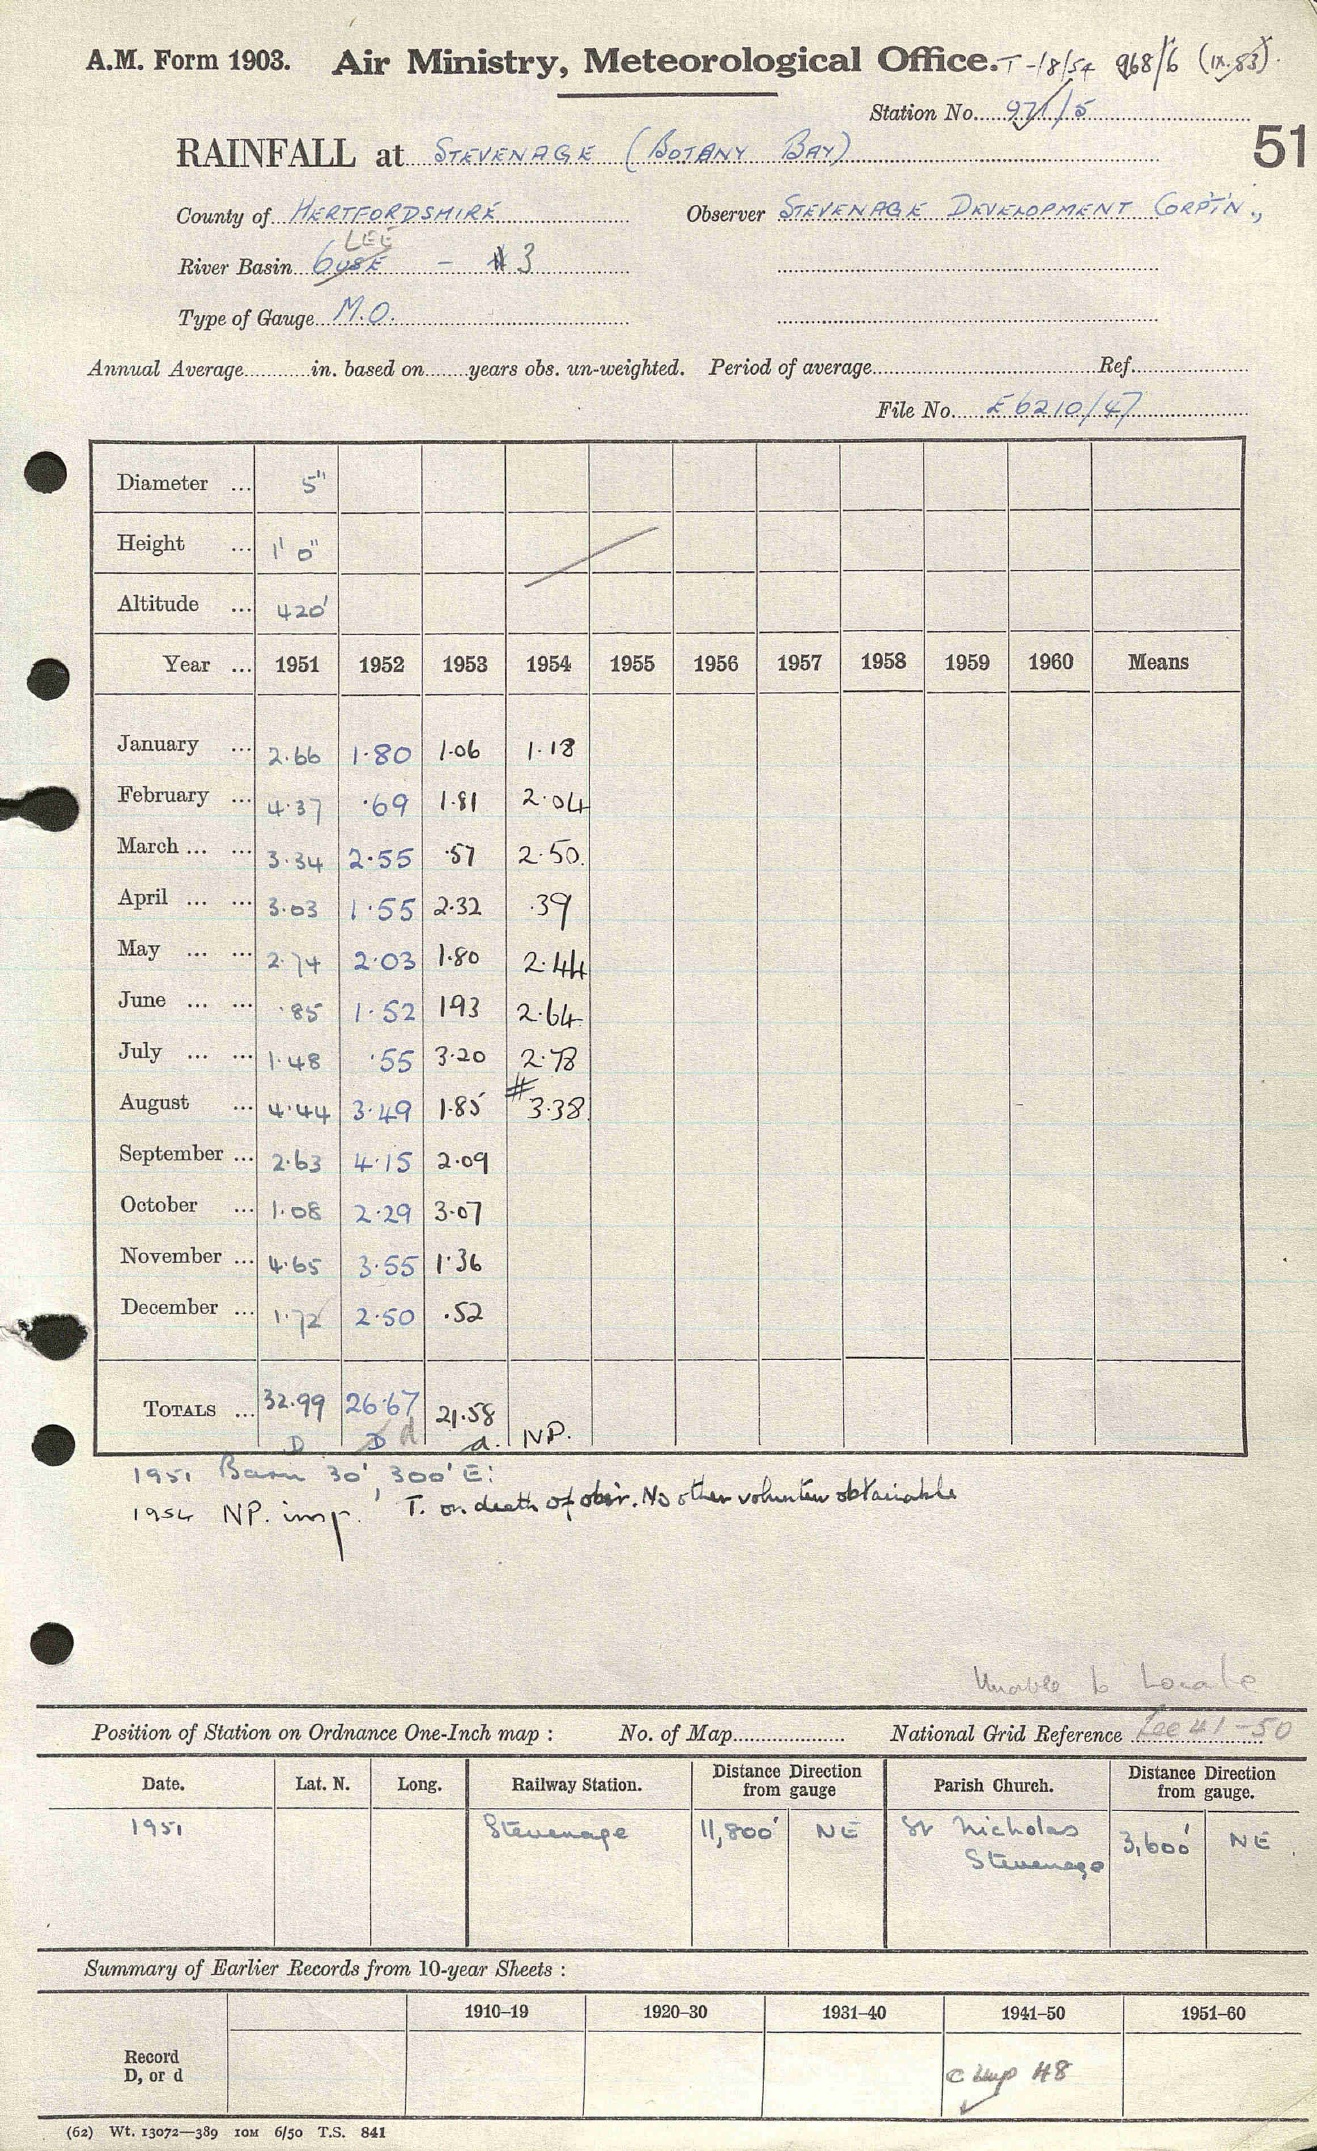 A.M. Form 1903. Air Ministry, Meteorological Office. T-/8/54 968/6 (IX.53).
Station No. 971/5
51
RAINFALL at STEVENAGE (BOTANY BAY)
County of HERTFORDSHIRE Observer STEVENAGE DEVELOPMENT CORP'T'N.,
LEE
River Basin OUSE - 3
Type of Gauge M.O.
Annual Average in. based on years obs. un-weighted. Period of average Ref.
File No. E6210/47
Diameter ... 5"
Height ... 1' 0"
Altitude ... 420'
Year ... 1951 1952 1953 1954 1955 1956 1957 1958 1959 1960 Means
January ... 2.66 1.80 1.06 1.18
February ... 4.37 .69 1.81 2.04
March ... ... 3.34 2.55 .57 2.50
April ... ... 3.03 1.55 2.32 .39
May ... ... 2.74 2.03 1.80 2.44
June ... ... .85 1.52 193 2.64
July ... ... 1.48 .55 3.20 2.73
August ... 4.44 3.49 1.85 # 3.38
September ... 2.63 4.15 2.09
October ... 1.08 2.29 3.07
November ... 4.65 3.55 1.36
December ... 1.72 2.50 .52
TOTALS ... 32.99 26.67 21.58
D D d d. NP.
1951 Barn 30', 300' E:
1954 NP. imp. T. on death of obsr. No other volunteer obtainable
Unable to Locate
Position of Station on Ordnance One-Inch map : No. of Map National Grid Reference See 41-50
Date. Lat. N. Long. Railway Station. Distance Direction from gauge Parish Church. Distance Direction from gauge.
1951 Stevenage 11,800' NE St Nicholas 3,600' NE
Stevenage
Summary of Earlier Records from 10-year Sheets :
1910–19 1920–30 1931–40 1941–50 1951–60
Record
D, or d
C imp 48
(62) Wt. 13072—389 10M 6/50 T.S. 841